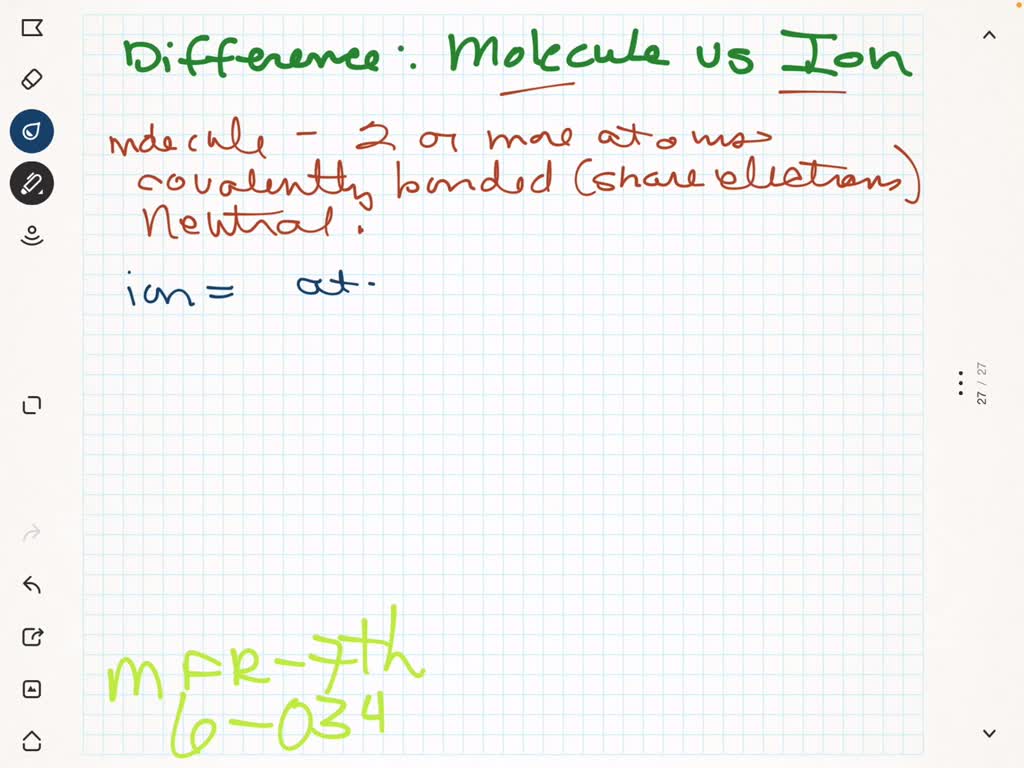 Difference: Molecule vs Ion
molecule - 2 or more atoms
covalently bonded (share electrons)
Neutral.
ion = at.
27 / 27
MFR-7th
6-034